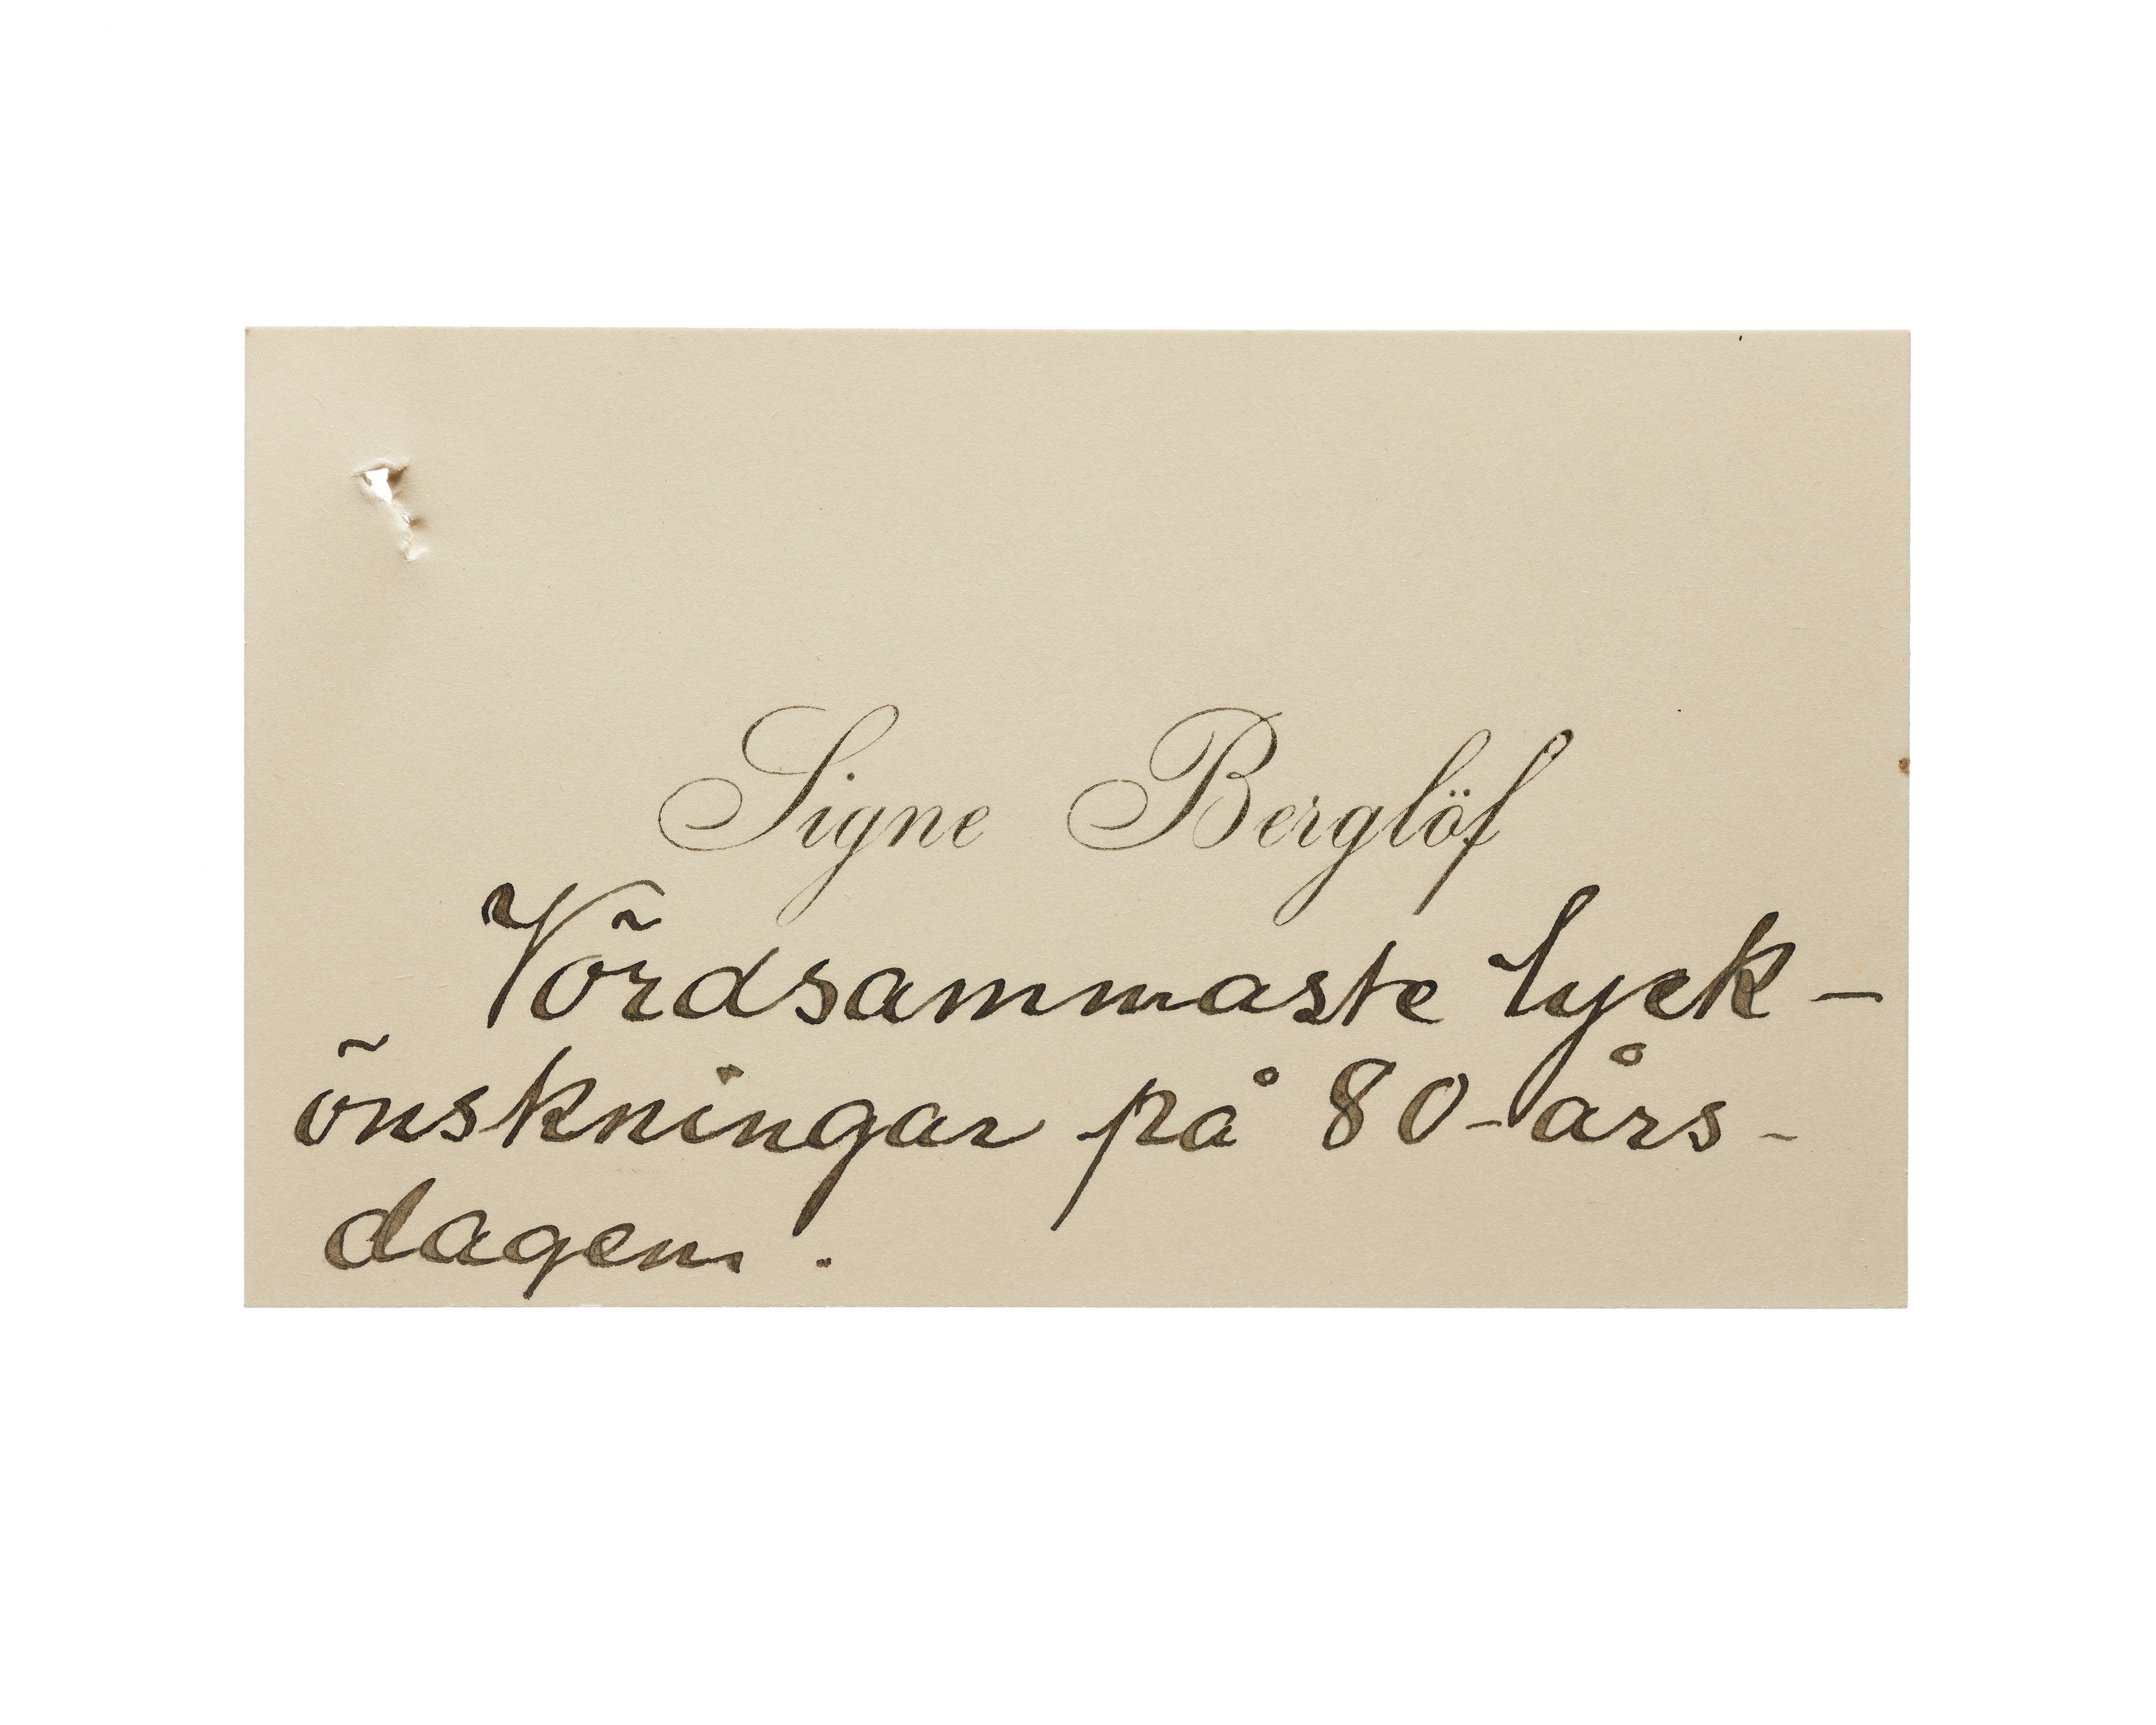 Signe Berglöf
Vördsammaste lyck-
önskningar på 80-års-
dagen.